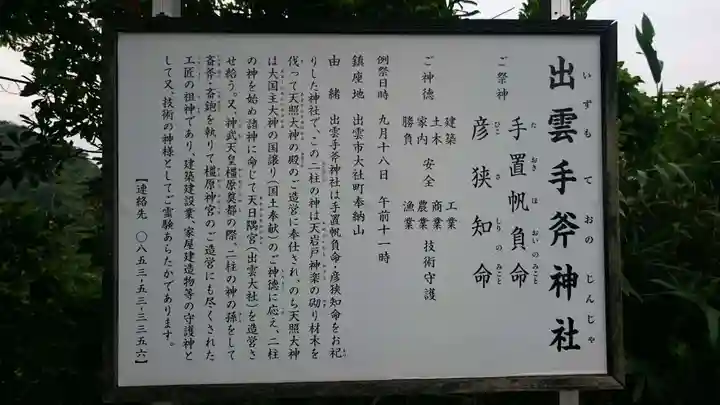 出雲手斧神社
いずも ておの じんじゃ
ご祭神
手置帆負命
た おき ほ おいのみこと
彦狭知命
ひこ さ しりのみこと
ご神徳
建築 工業
土木 商業
家内 安全 農業 技術守護
勝負 漁業
例祭日時 九月十八日 午前十一時
鎮座地 出雲市大社町奉納山
由緒 出雲手斧神社は手置帆負命・彦狭知命をお祀
りした神社で、この二柱の神は天岩戸神楽の砌り材木を
伐って天照大神の殿のご造営に奉仕され、のち天照大神
は大国主大神の国譲り(国土奉献)のご神徳に応え、二柱
の神を始め諸神に命じて天日隅宮(出雲大社)を造営さ
せ給う。又、神武天皇橿原奠都の際、二柱の神の孫をして
斎斧・斎鉋を執りて橿原神宮のご造営にも尽くされた
工匠の祖神であり、建築建設業、家屋建造物等の守護神と
して又、技術の神様としてご霊験あらたかであります。
【連絡先 〇八五三-五三-三三五六】